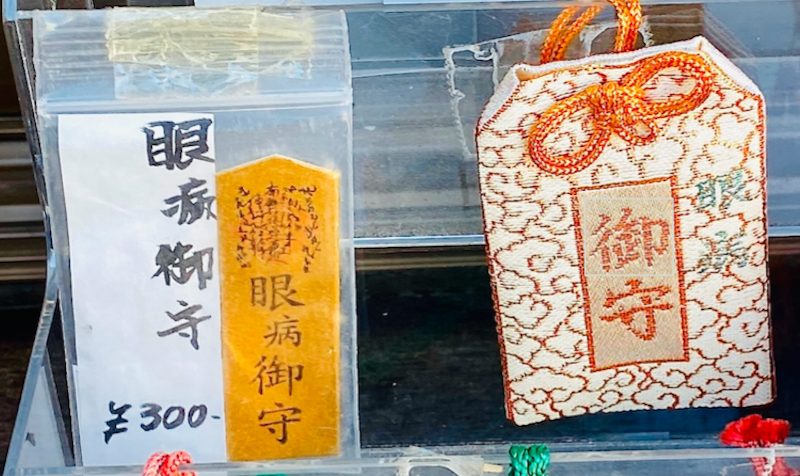 眼病御守
¥300-
眼病御守
御守
眼病